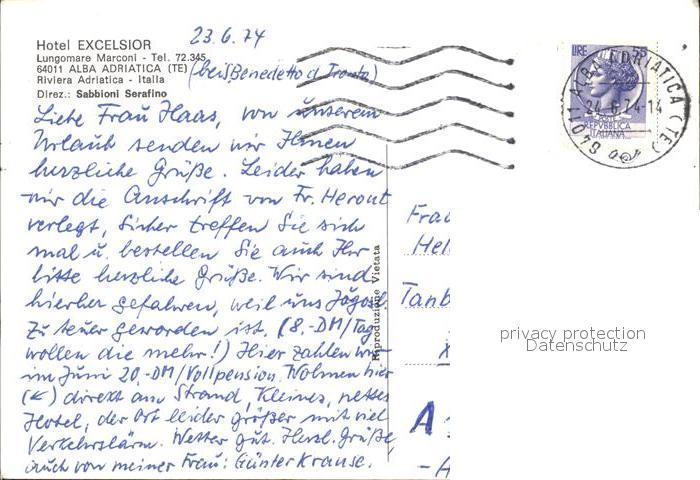 23.6.74
Hotel EXCELSIOR
Lungomare Marconi - Tel. 72.345
64011 ALBA ADRIATICA (TE)
Riviera Adriatica - Italia
Direz.: Sabbioni Serafino
(bei S. Benedetto d. Tronto)
Liebe Frau Haas, von unserem
Urlaub senden wir Ihnen
herzliche Grüße. Leider haben
wir die Anschrift von Fr. Herout
verlegt, Sicher treffen Sie sich
mal u. bestellen Sie auch Ihr
bitte herzliche Grüße. Wir sind
hierher gefahren, weil uns Jugosl.
zu teuer geworden ist. (8.-DM/Tag
wollen die mehr!) Hier zahlen wir
im Juni 20.-DM/Vollpension. Wohnen hier
(↙) direkt am Strand, Kleines, nettes
Hotel, der Ort leider größer mit viel
Verkehrslärm. Wetter gut. Herzl. Grüße
auch von meiner Frau: Günter Krause.
Riproduzione Vietata
LIRE 55
REPVBBLICA
ITALIANA
64011 ALBA ADRIATICA (TE)
24.6.74-14
Frau
Hel
Tanb
A
-A
privacy protection
Datenschutz